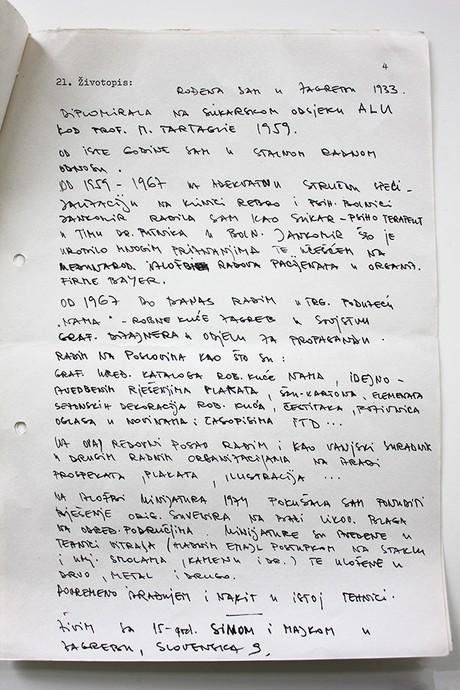 4
21. Životopis:
ROĐENA SAM U ZAGREBU 1933.
DIPLOMIRALA NA SLIKARSKOM ODSJEKU ALU
KOD PROF. M. TARTAGLIE 1959.
OD ISTE GODINE SAM U STALNOM RADNOM
ODNOSU.
OD 1959 - 1967 UZ ADEKVATNU STRUČNU SPECI-
JALIZACIJU NA KLINICI REBRO I PSIH. BOLNICI
JANKOMIR RADILA SAM KAO SLIKAR - PSIHOTERAPEUT
U TIMU DR. U BOLN. JANKOMIR ŠTO JE
URODILO MNOGIM PRIZNANJIMA TE UČEŠĆEM NA
MEĐUNAROD. IZLOŽBI RADOVA PACIJENATA U ORGANIZ.
FIRME BAYER.
OD 1967 DO DANAS RADIM U TRG. PODUZEĆU
"NAMA" - ROBNE KUĆE ZAGREB U SVOJSTVU
GRAF. DIZAJNERA U ODJELU ZA PROPAGANDU.
RADIM NA POSLOVIMA KAO ŠTO SU:
GRAF. URED. KATALOGA ROB. KUĆE NAMA, IDEJNO-
IZVEDBENIM RJEŠENJIMA PLAKATA, ELEMENATA
SEZONSKIH DEKORACIJA ROB. KUĆA, ČESTITAKA, POZIVNICA
OGLASA U NOVINAMA I ČASOPISIMA ITD...
UZ OVAJ REDOVNI POSAO RADIM I KAO VANJSKI SURADNIK
U DRUGIM RADNIM ORGANIZACIJAMA NA IZRADI
PROSPEKATA, PLAKATA, ILUSTRACIJA ...
NA IZLOŽBI MINIJATURA 1974 POKUŠALA SAM PONUDITI
RJEŠENJE ORIG. SUVENIRA NA BAZI LIKOV. BLAGA
NA ODREĐ. PODRUČJIMA. MINIJATURE SU IZVEDENE U
TEHNICI VITRAJA (HLADNIM EMAJL POSTUPKOM NA STAKLU
I UMJ. SMOLAMA, KAMENU I DR.) TE ULOŽENE U
DRVO, METAL I DRUGO.
POVREMENO IZRAĐUJEM I NAKIT U ISTOJ TEHNICI.
ŽIVIM SA 15-GOD. SINOM I MAJKOM U
ZAGREBU, SLOVENSKA 9.